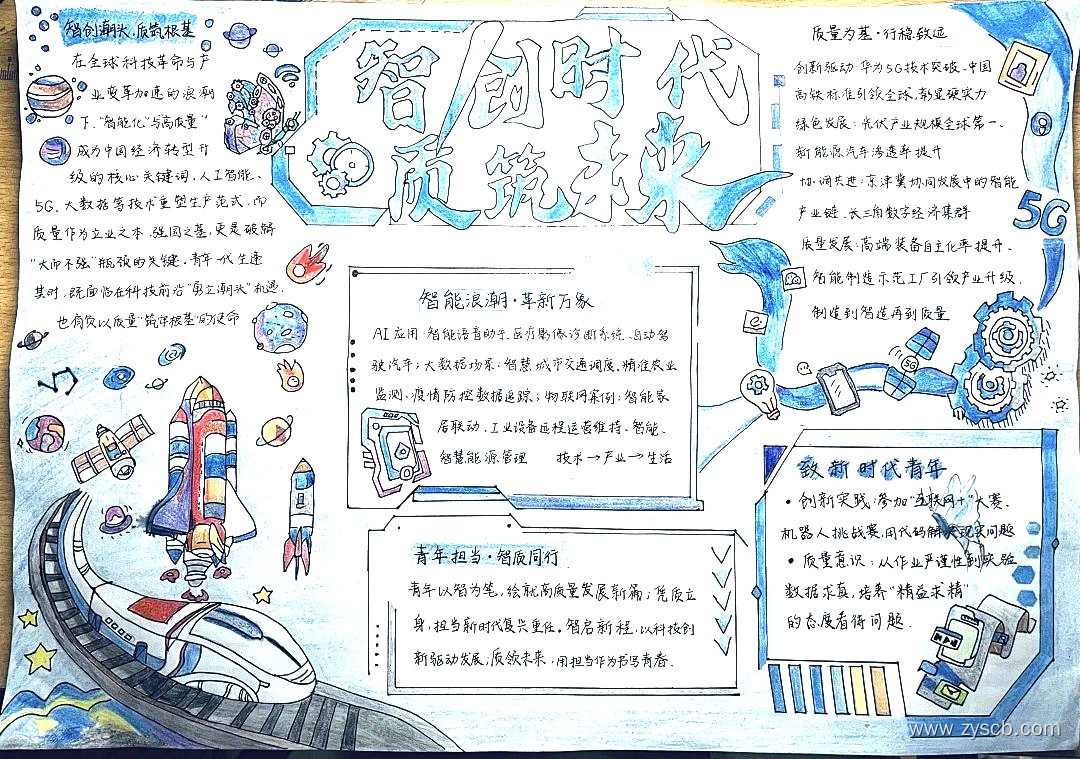 智创时代
质筑未来
智创潮头,质筑根基
在全球科技革命与产
业变革加速的浪潮
下,"智能化"与高质量"
成为中国经济转型升
级的核心关键词,人工智能、
5G、大数据等技术重塑生产范式,而
质量作为立业之本、强国之基,更是破解
"大而不强"瓶颈的关键,青年一代生逢
其时,既面临在科技前沿"勇立潮头"机遇,
也肩负以质量"筑牢根基"的使命
智能浪潮·革新万象
AI应用:智能语音助手、医疗影像诊断系统、自动驾
驶汽车;大数据场景:智慧城市交通调度、精准农业
监测、疫情防控数据追踪;物联网案例:智能家
居联动、工业设备远程运营维持、智能、
智慧能源管理 技术→产业→生活
青年担当·智质同行
青年以智为笔,绘就高质量发展新篇;凭质立
身,担当新时代复兴重任。智启新程,以科技创
新驱动发展;质领未来,用担当作为书写青春.
质量为基·行稳致远
创新驱动:华为5G技术突破、中国
高铁标准引领全球,彰显硬实力
绿色发展:光伏产业规模全球第一、
新能源汽车渗透率提升
协调共进:京津冀协同发展中的智能
产业链、长三角数字经济集群
质量发展:高端装备自主化率提升、
智能制造示范工厂引领产业升级,
制造到智造再到质量
5G
5G
e
致新时代青年
• 创新实践:参加"互联网+"大赛、
机器人挑战赛,用代码解决现实问题
• 质量意识:从作业严谨性到实验
数据求真,培养"精益求精"
的态度看待问题.
www.zyscb.com